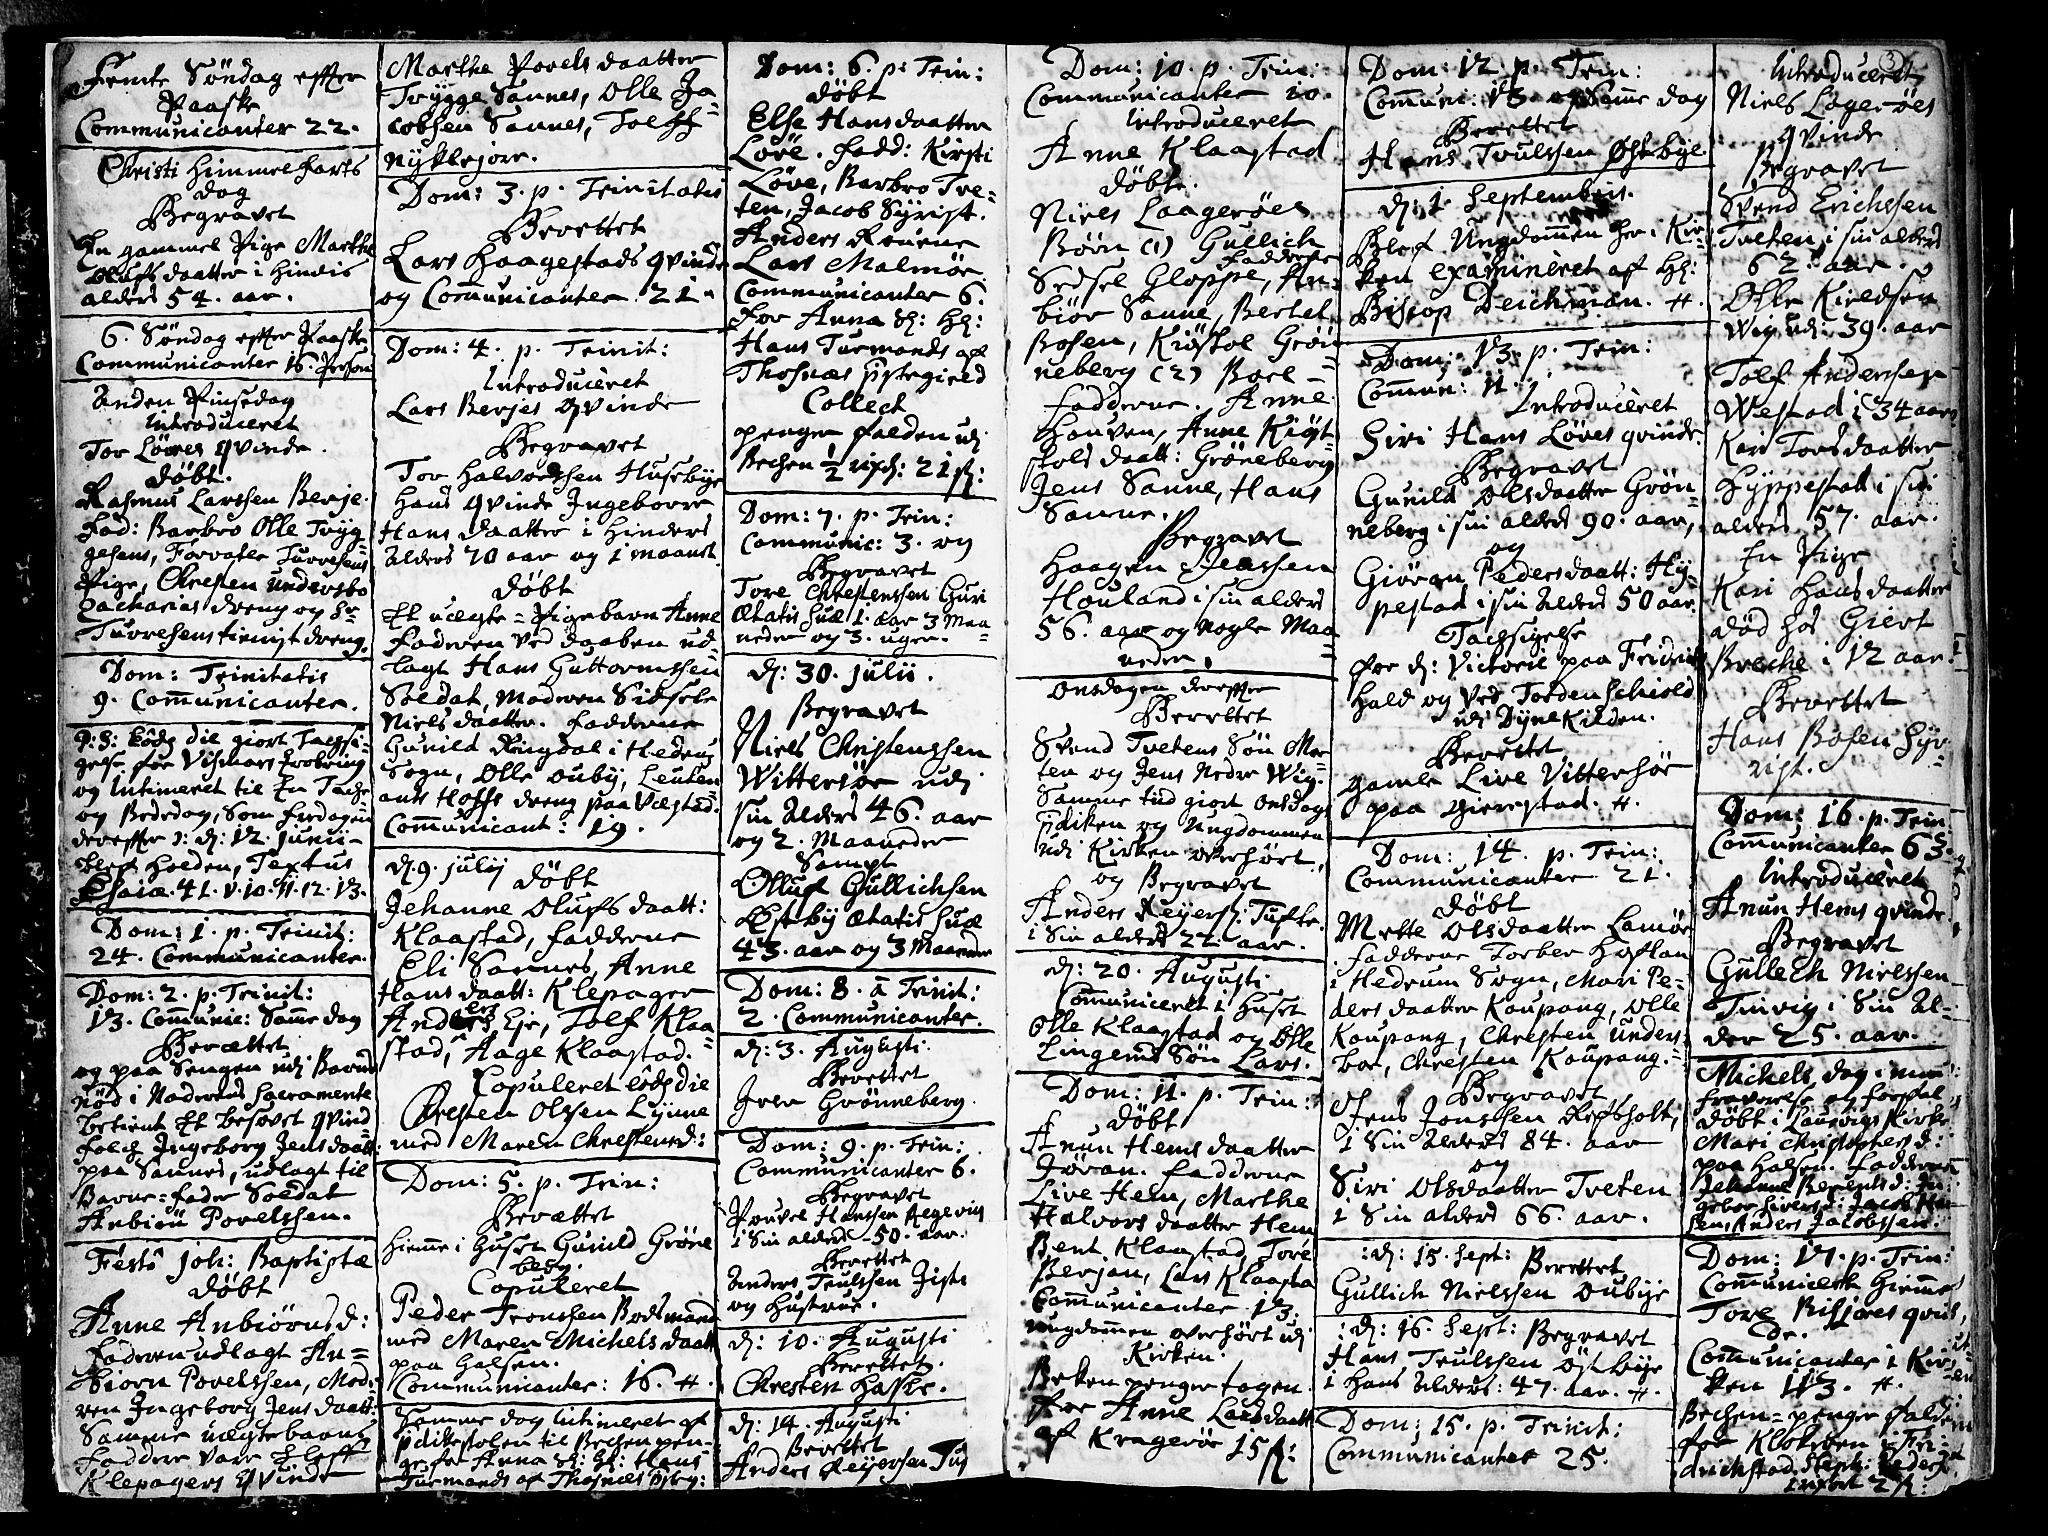 Femte Söndag effter
Paaske
Communicanter 22.
Christi Himmelfarts
dag
Begravet
En gammel Pige Marthe
Olufs daatter i hindis
alders 54. aar.
6. Söndag effter Paaske
Communicanter 16. Person
Anden Pinsedag
Introduceret
Tor Löwes qvinde.
döbt.
Rasmus Larssen Berje.
Fad: Barbro Olle Tryg
gesens, Forvalter Turresens
Pige, Christen Undersbo
Zacharias dreng og Sr
Turresens tienist dreng.
Dom: Trinitatis
9. Communicanter.
P: S: bode die giort Tachsi-
gelse for Vismars Erobring
og Intimeret til En Tache
og Bededag, Som fredagen
dereffter ɔ: d: 12. Junii
blef holden, Textus
Esaiæ. 41. v. 10. 11. 12. 13.
Dom: 1. p. Trinit:
24. Communicanter.
Dom: 2. p. Trinit:
13. Communic: Samme dag
Berættet
og paa Sengen udi Barns
nöd i Naderens Sacramente
betient Et besovet qvind
folch Ingeborg Jens daatt:
paa Sannes, udlagt til
Barne-fader Soldat
Anbiörn Povelssen.
Festo Joh: Baptistæ
döbt
Anne Anbiörns d:
faderen udlagt An=
biorn Povelssen, Mod-
ren Ingeborg Jens daatt:
Samme uegte barns
faddere vare Eleff
Klepagers qvinde
Marthe Povels daatter
Trygge Sannes, Olle Ja
cobsen Sannes, Toleff
Nyklejore.
Dom: 3. p. Trinitatis
Berettet
Lars Haagestads qvinde
og Communicanter 21.
Dom: 4. p. Trinit:
Introduceret
Lars Berjes qvinde
Begravet
Tor Halvorssen Husebye
hans qvinde Ingeborre
Hans daatter i hinders
Alders 70 aar og 1 maanet.
döbt
Et uegte-Pigebarn Anne
Faderen ved daaben ud-
lagt Hans Guttormssen
Soldat, Moderen Sidsele
Niels daatter. faddere
Gunild Ringdal i Hedrum
Sogn, Olle Ouby, Leuten
ants Hoffs dreng paa Vegstad.
Communicant: 19.
d. 9. Julij
döbt
Jehanne Olufs daatt:
Klaastad, fadderne
Eli Sannes, Anne
Hans daatt: Klepager
Anders Eje, Tolf Klaa
stad, Aage Klaastad.
Copuleret bode die
Christen Olssen Lynne
med Maren Christens d:
Dom: 5. p. Trin:
Berættet
hiemme i huset Gunild Gröne
berg.
Copuleret
Peder Tronsen Bodsmand
med Maren Michels daatt
paa Halsen.
Communicanter: 16.
Samme dag Intimeret af
prædikestolen til Bechen pen-
ge for Anna Sl: Hl: Hans
Turmands af Thosnæs Ostg:
Dom: 6. p. Trin:
döbt
Else Hans daatter
Löve. fadd: Kirsti
Löve, Barbro Tve-
ten, Jacob Syrist.
Anders Rouene
Lars Malmöe
Communicanter 6.
For Anna Sl: Hl:
Hans Turmands af
Thosnæs Ostegield
Collect
penger falden udi
Bechen ½ rixd: 21 ß:
Dom: 7. p. Trin:
Communic: 3. og
Begravet
Tore Christenssen Guri
Ætatis Suæ 1. aar 3 Maa=
neder og 3. uger.
d: 30. Julii.
Begravet
Niels Christenssen
Wittersöe udi
Sin Alders 46. aar
og 2. Maaneder
Sampt
Olluf Gullichsen
Østby Ætatis Suæ
43. aar og 3 Maaneder
Dom: 8. a Trinit:
2. Communicanter.
d: 3. Augusti.
Berettet
Iver Grönneberg.
Dom: 9. p. Trin:
Communicanter 6.
Begravet
Pouvel Hanssen Regevig
i Sin alders 50. aar.
Berettet
Anders Trulssen Ziste
og Hustrue.
d: 10. Augusti
Berettet.
Christen Haske.
d: 14. Augusti
Berettet
Anders Reijersen Tuf
Dom: 10. p. Trin:
Communicanter 10.
Introduceret
Anne Klaastad
döbt.
Niels Laageröes
Börn (1) Gullich
fadderne
Sedsel Gloppe, An-
biör Sanne, Bertel
Bosen, Kiöstol Grön
neberg (2) Boel-
fadderne. Anne
Houven, Anne Kiöst-
tols daatt: Gröneberg
Jens Sanne, Hans
Sanne.
Begravet
Haagen Jenssen
Houland i sin alders
56. aar og nogle Maa
neder.
Onsdagen dereffter
Berettet
Svend Tvetens Sön Mor-
ten og Jens Nedre Wig.
Samme tiid giort Onsdags
prediken og Ungdommen
udi Kirken overhört.
og Begravet
Anders Reijers: Tufte.
i Sin alders 22. aar.
d: 20. Augusti
Communiceret i huset
Olle Klaastad og Olle
Lingems Sön Lars.
Dom: 11. p. Trin:
döbt
Anun Hems daatter
Joran. fadderne
Live Hem, Marthe
Halvors daatter Hem
Bent Klaastad, Tore
Berjan, Lars Klaasta
Communicanter 13.
Ungdommen overhört udi
Kirken.
Beken penger tagen.
for Anne Larsdaatt
af Krageröe 15 ß:
Dom: 12. p. Trin:
Commun: 13 og Samme dag
Berettet
Hans Trulssen Østebye
d: 1. Septembris.
Blef Ungdommen her i Kir-
ken examineret af Hl:
Biscop Deichman.
Dom: 13. p. Trin:
Commun: 11.
Introduceret
Siri Hans Löves qvinde.
Begravet
Gunild Olsdaatter Grön-
neberg i sin alders 90. aar,
og
Giöran Pedersdaatt: Hy-
pestad i sin Alders 50 aar
Tachsigelse
for d: Victorie paa Fridrichs
hald og ved Tordenschiold
udi Dynekilden.
Berettet
gamle Live Vittersöe
paa Gierestad.
Dom: 14. p. Trin:
Communicanter 21.
döbt
Mette Olsdaatter Lamöe
fadderne Torber Hoflan
i Hedrum Sogn, Mari Pe-
ders daatter Kaupang, Olle
Kaupang, Christen Unders-
boe, Christen Kaupang.
Begravet
Jens Jonssen Refsholt,
i Sin Alders 84. aar
og
Siri Olsdaatter Tveten
i Sin alders 66. aar.
d: 15. Sept: Berettet
Gullich Nielssen Oubye
d: 16. Sept: Begravet
Hans Trulssen Østbye
i hans Alders: 47. aar.
Dom: 15. p. Trinit:
Communicanter 25.
3
Introduceret
Niels Lageröes
qvinde
Begravet
Svend Erichssen
Tveten i sin alders
62. aar.
Olle Kieldsen
Wig udi 39. aar
Tolf Andersen
Westad i 34 aar.
Kari Tords daatter
Hyppestad i sin
alders 57. aar.
En Pige
Kari Hans daatter
död hos Giert
Breche i 12 aar.
Berettet
Hans Bosen Syr-
rist.
Dom: 16. p. Trin:
Communicanter 63.
Introduceret
Anun Hems qvinde
Begravet
Gullech Nielssen
Tinvig i Sin Al-
der 25. aar.
Michels dag i min
fraværelse og forfal
döbt i Laurvigs Kirke
Mari Christophers d:
paa Halsen. fadderne
Jehanne Berents d: In
gebor Sivers d: Jacob Han
sen, Anders Jacobssen.
Dom: 17. p. Trin:
Communiceret hiemme
Tore Bisjores qvin
de.
Communicanter i Kir-
ken 13.
Bechen-penger falden
for Klokeren i Fri-
drichstad Steph: Peders
indbet 2 ß: